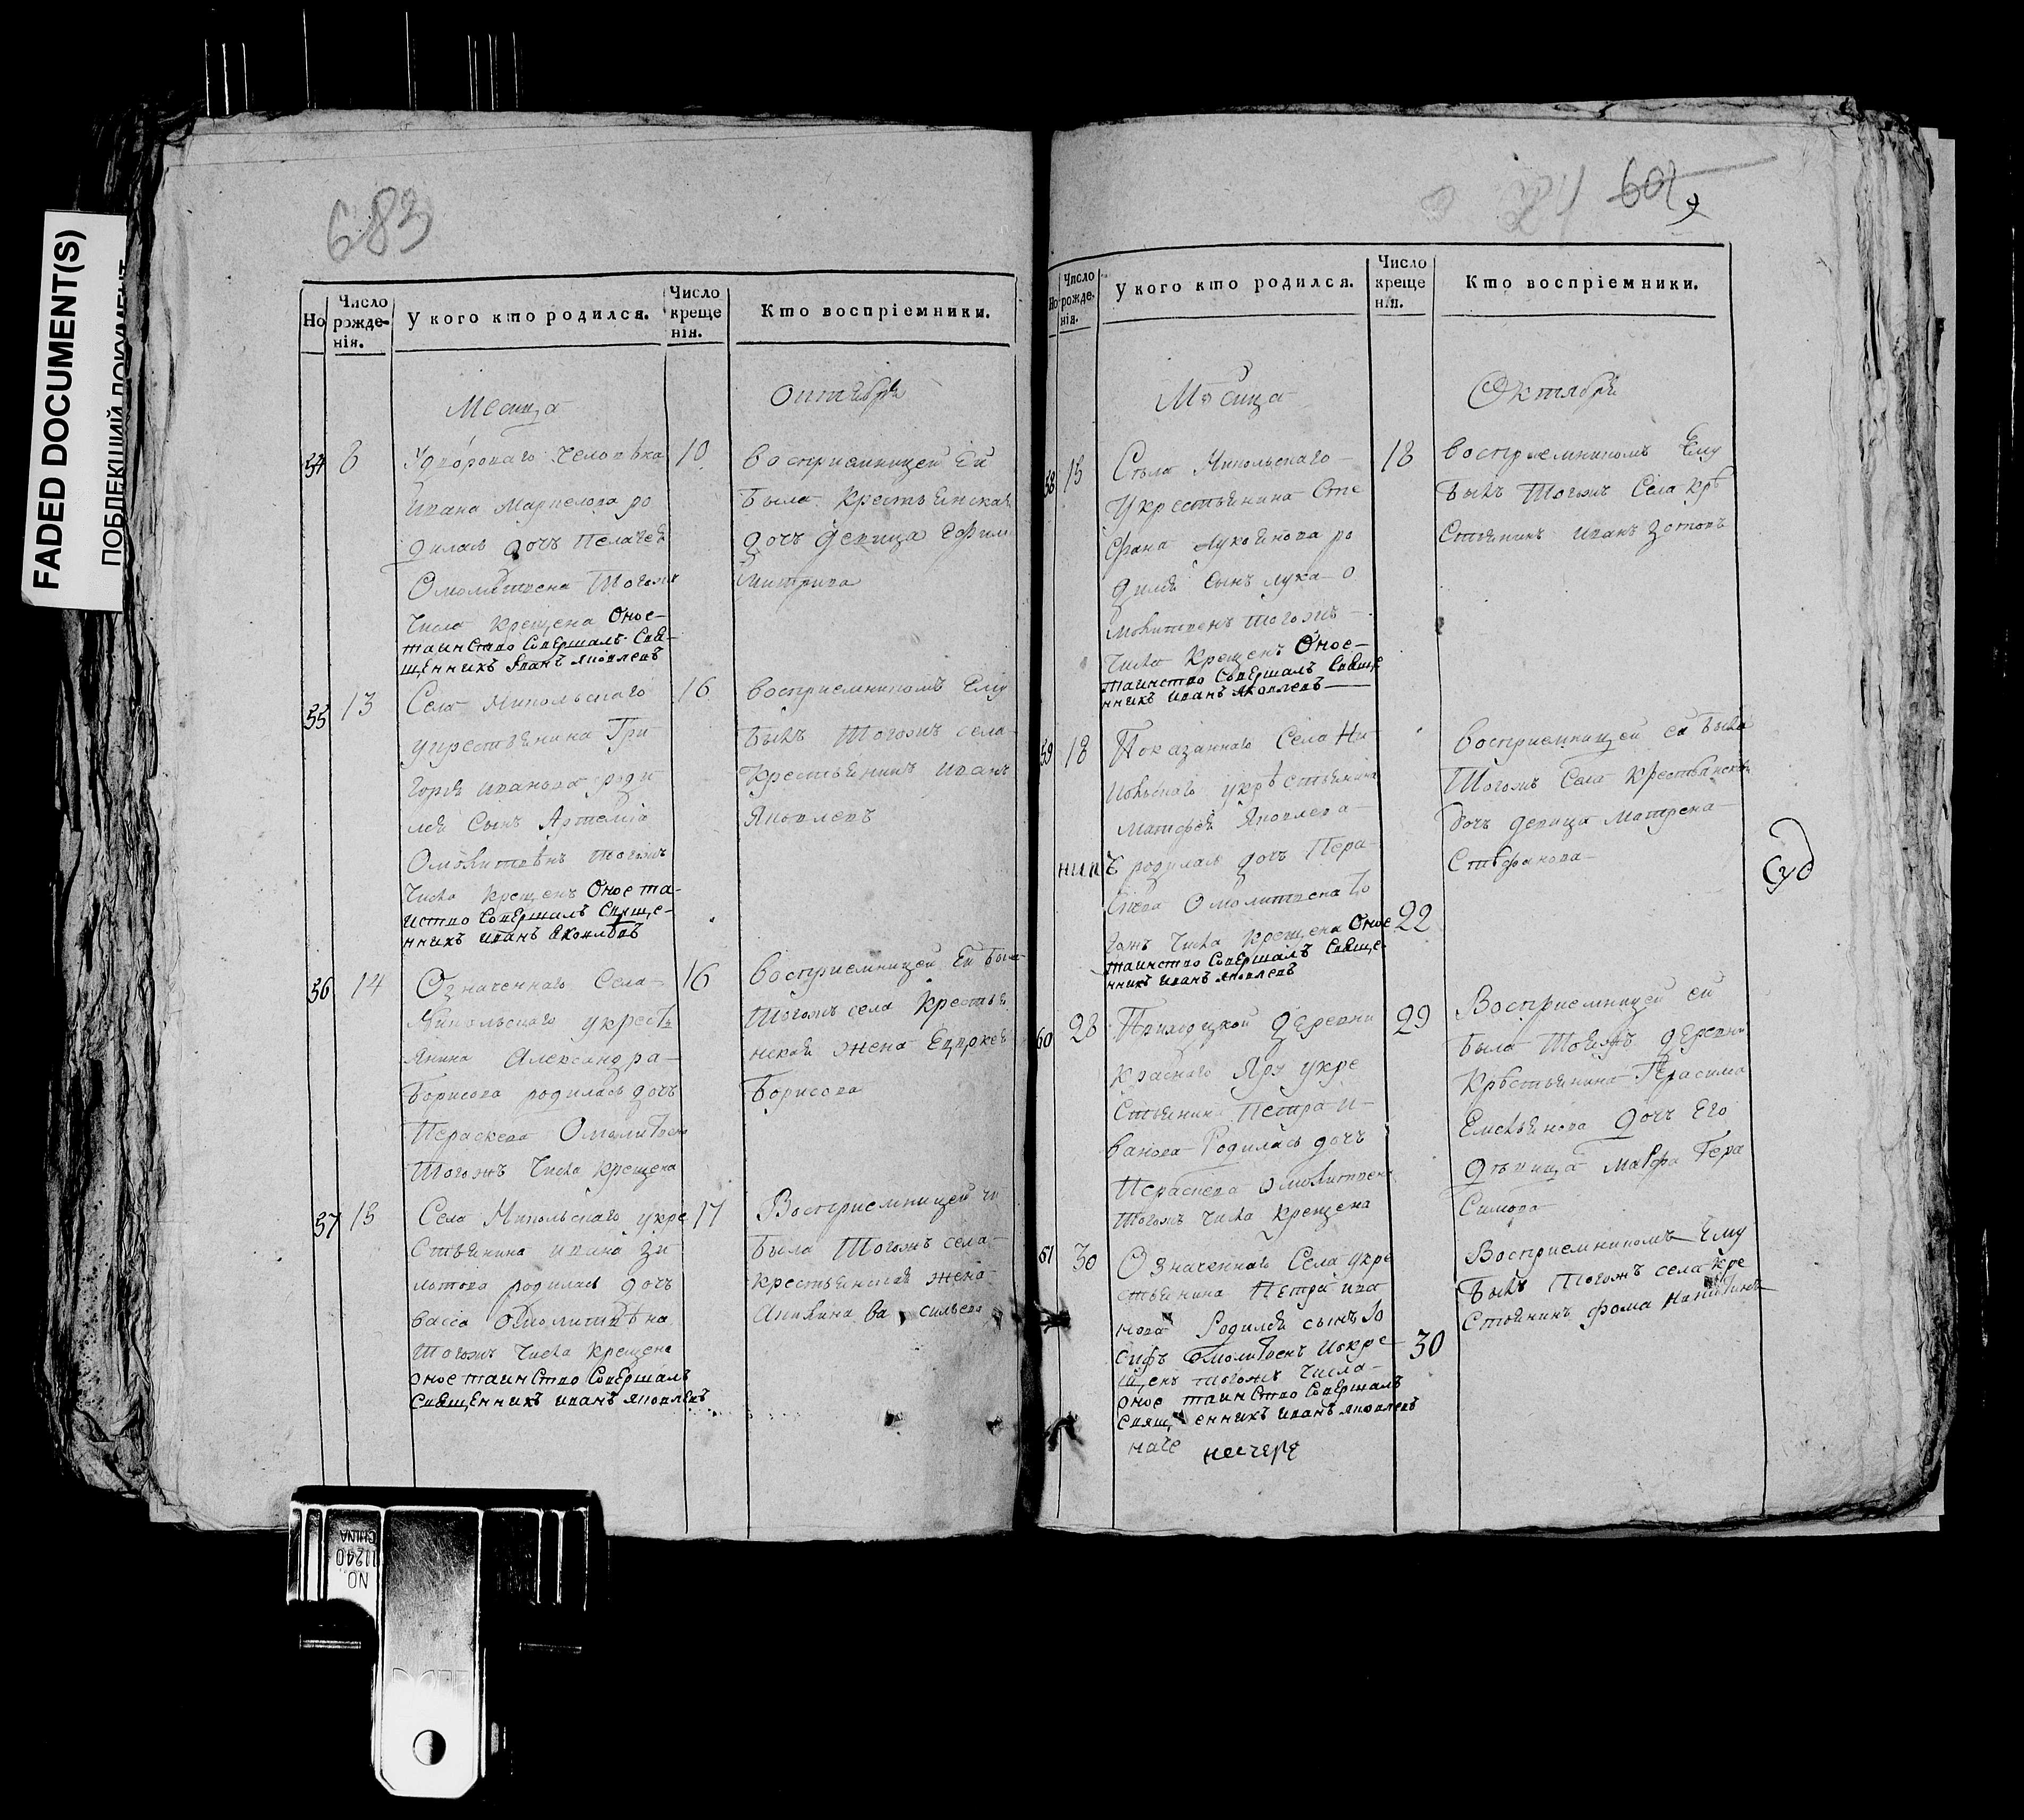 FADED DOCUMENT(S)
ПОБЛЕКШИЙ ДОКУМЕНТ
683
Но
Число рожде- нія.
У кого кто родился.
Число креще нія.
Кто воспріемники.
Месяца
Октября
54 8
Удворового человека
Ивана Маркелова ро
дилась дочь Пелагея
Омолитвена тогожъ
числа крещена Оное
таинство совершалъ Свя-
щенникъ Иванъ Яковлевъ
10
восприемницей ей
была крестьянская
дочь девица Ефим
Митрива
55 13
Села Никольскаго
укрестьянина Гри
горья иванова роди
лся сынъ Артемий
Омолитвѣнъ тогожъ
числа крещенъ Оное та-
инство совершилъ Свяще-
нникъ иванъ Яковлевъ
16
восприемникомъ ему
былъ тогожъ села
крестьянинъ иванъ
Яковлевъ
56 14
Означеннаго Села
Никольскаго укресть
янина Александра
Борисова родилась дочь
Пераскева Омолитвена
тогожъ числа крещена
16
восприемницей ей была
тогожъ села крестья
нская жена
Борисова
57 15
Села Никольскаго укре
стьянина ивана Зи
нотова родилась дочь
васса Омолитвѣна
тогожъ числа крещена
оное таинство совершалъ
Священникъ иванъ яковлевъ
17
Восприемницей
была тогожъ села
крестьянская жена
Акилина Васильева
6012
Но
Число рожде- нія.
У кого кто родился.
Число креще нія.
Кто воспріемники.
Мѣсяца
Октября
58 15
Села Никольскаго
Укрестьянина Сте
фана Лукоянова ро
дился сынъ лука о
молитвенъ тогожъ
числа крещенъ Оное
таинство совершалъ Свяще
нникъ иванъ Яковлевъ
18
восприемникомъ ему
былъ тогожъ села кре
стьянинъ иванъ Зотовъ
59 18
Показаннаго Села Ни
кольскаго укрѣстьянина
матфея Яковлева
родилась дочь Пера
скева Омолитвена то
гожъ числа крещена Оное
таинство совершалъ Свяще
нникъ иванъ яковлевъ
22
восприемницей ей была
тогожъ села крестьянская
дочь девица матрена
Стефанова
Суд
60 28
Приходской деревни
Краснаго Яру укре
стьянина Петра и
ванова Родилась дочь
Пераскева омолитвена
тогожъ числа крещена
29
Восприемницей ей
была тойжъ деревни
Крѣстьянина Герасима
Емельянова дочь его
дѣвица марфа Гера
симова
61 30
Означеннаго Села укре
стьянина Петра ива
нова Родился сынъ Ио
сифъ омолитвенъ икре
щенъ тогожъ числа
оное таинство совершалъ
Священникъ иванъ яковлевъ
30
Восприемникомъ ему
былъ тогожъ села кре
стьянинъ фома Никитинъ